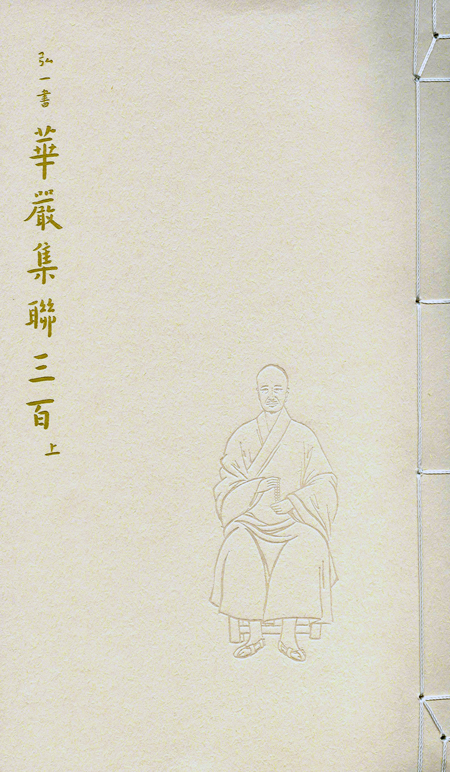 弘一書
華嚴集聯三百
上